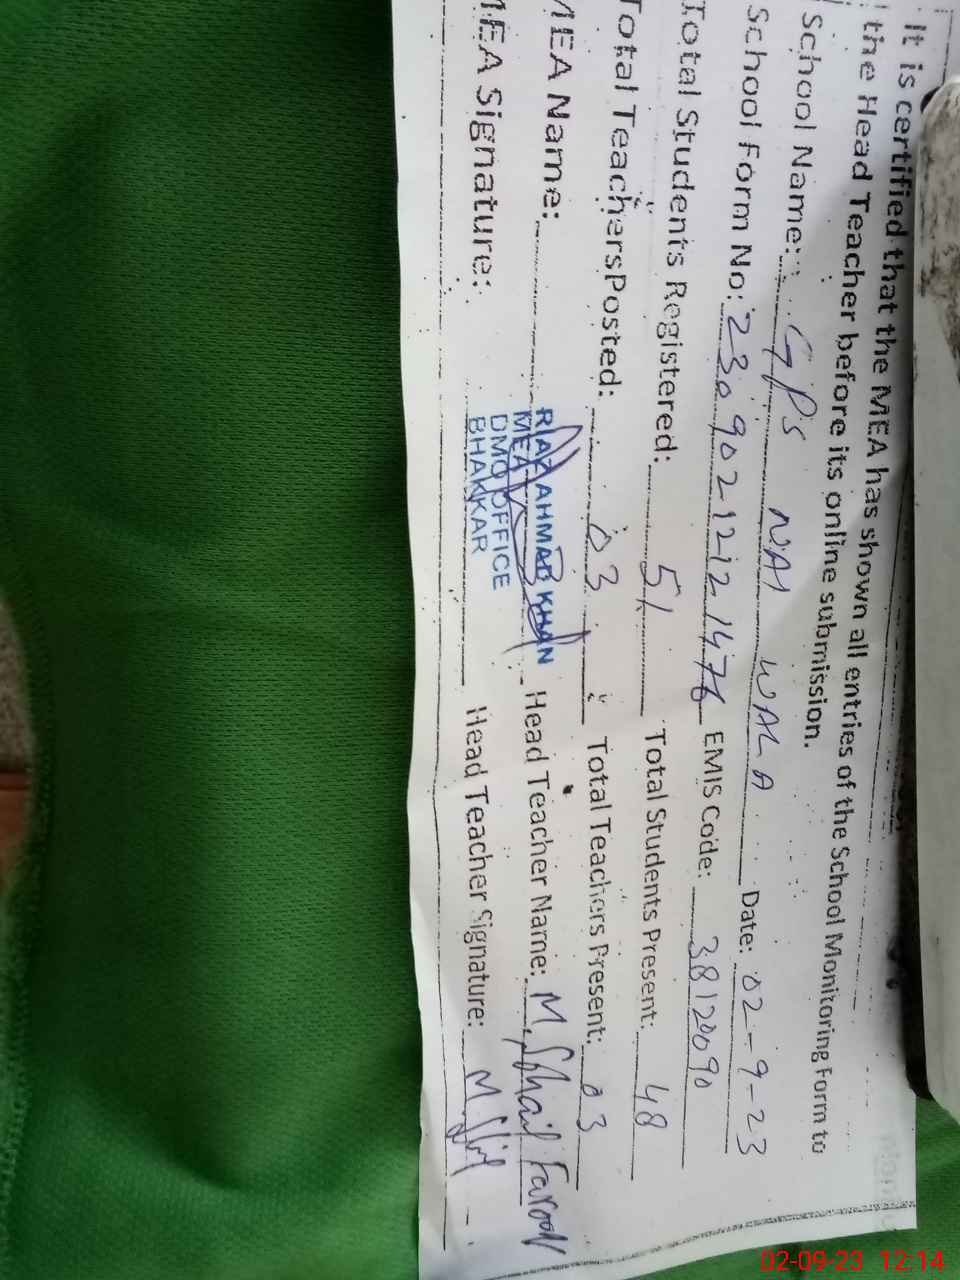 It is certified that the MEA has shown all entries of the School Monitoring Form to
the Head Teacher before its online submission.
School Name: GPS NAI WALA Date: 02-9-23
School Form No: 23090212121476 EMIS Code: 38120090
Total Students Registered: 51 Total Students Present: 48
Total Teachers Posted: 03 Total Teachers Present: 03
MEA Name: RIAZ AHMAD KHAN Head Teacher Name: M. Sohail Farooq
MEA
MEA Signature: DMO OFFICE Head Teacher Signature:
BHAKKAR
02-09-23 12:14